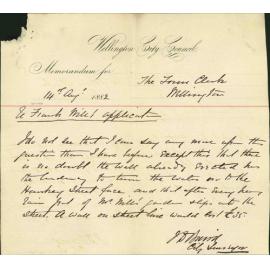 Wellington City Council
Memorandum for
The Town Clerk
Wellington
14th Augt 1882
Re Frank Mill's application
I do not see that I can say any more upon this
question than I have before except this that there
is no doubt the wall already erected has
the tendency to turn the water on to the
Hawkey Street face and that after every heavy
rain part of Mr Mill's garden slips into the
Street. A wall on Street line would cost £35.
City Surveyor